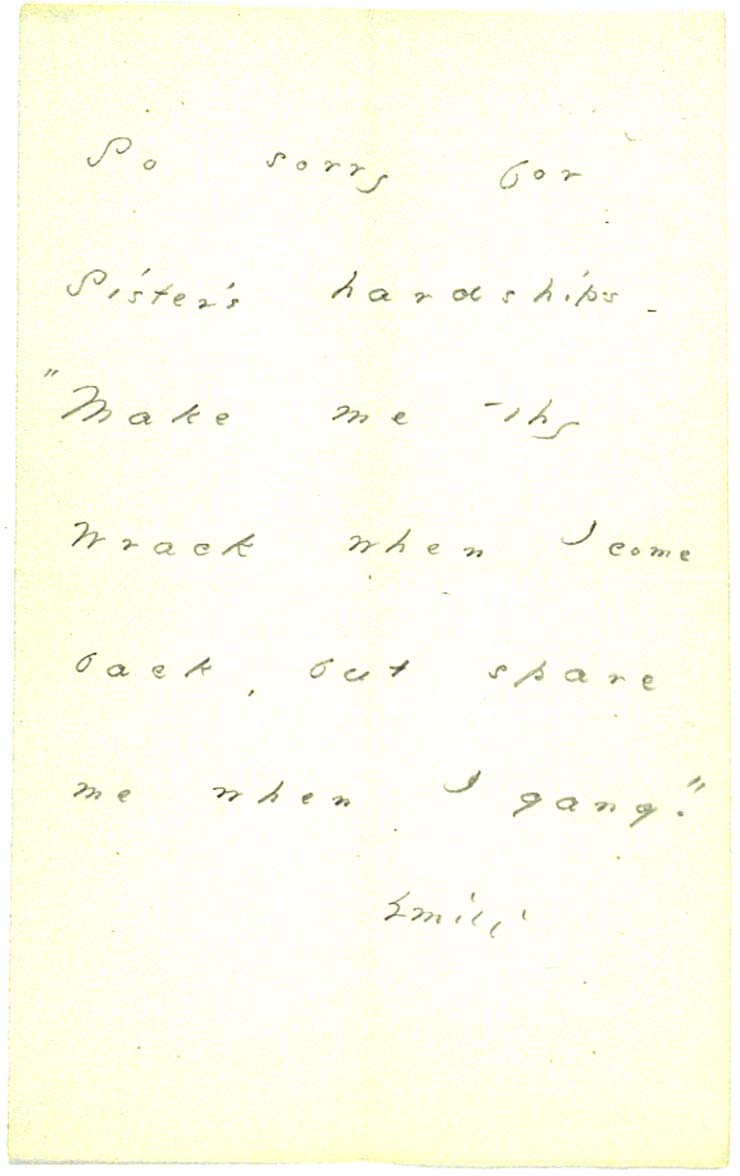 So sorry for
Sister's hardships -
"Make me thy
Wrack when I come
back, but spare
me when I gang."
Emily